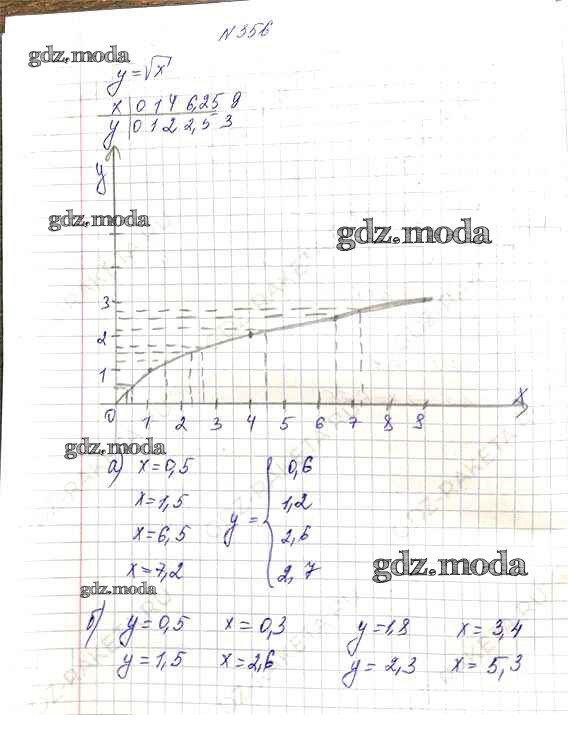 N 356
gdz.moda
y = √x
x | 0 1 4 6,25 9
y | 0 1 2 2,5 3
y
gdz.moda
gdz.moda
3
2
1
x
0 1 2 3 4 5 6 7 8 9
gdz.moda
а) x = 0,5
x = 1,5
x = 6,5
x = 7,2
y = { 0,6
1,2
2,6
2,7
gdz.moda
gdz.moda
б) y = 0,5 x = 0,3 y = 1,8 x = 3,4
y = 1,5 x = 2,6 y = 2,3 x = 5,3